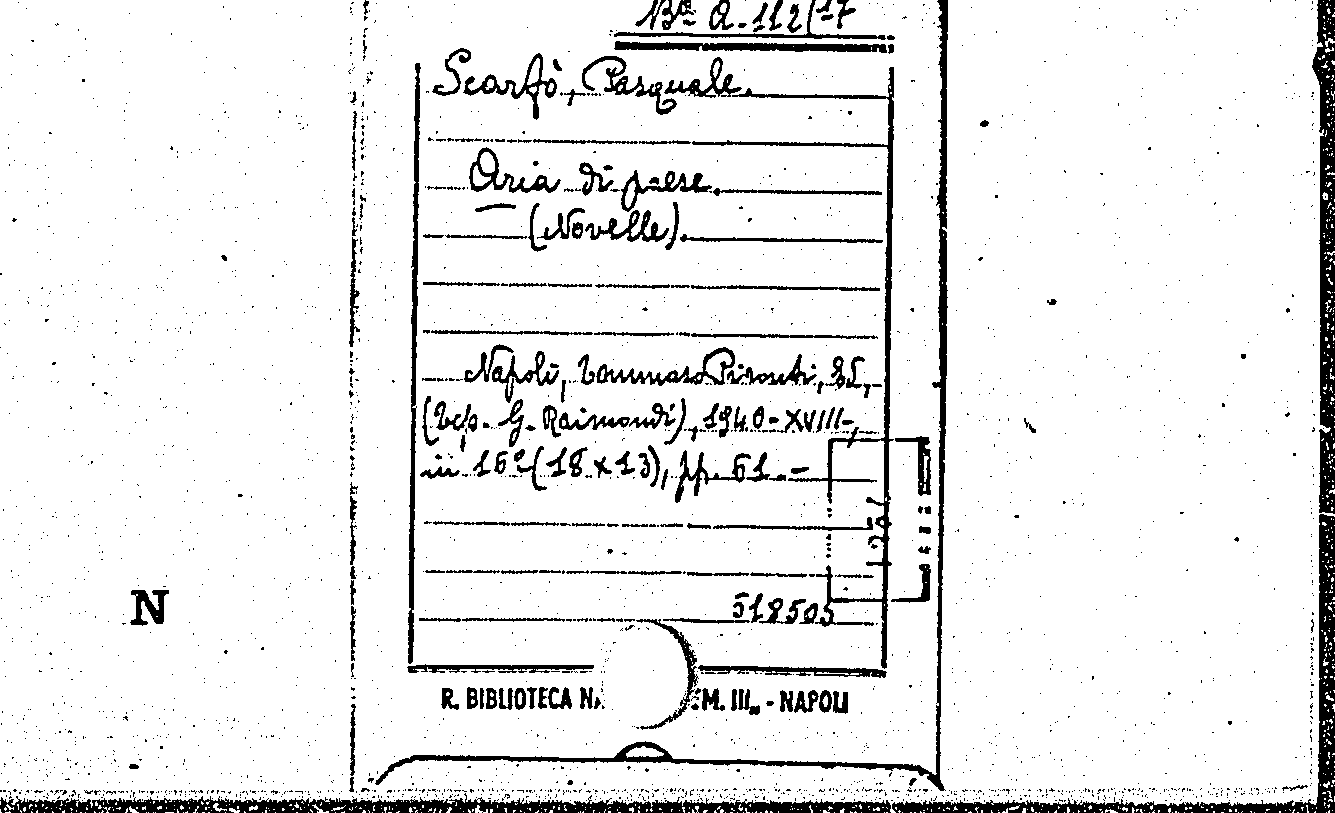 Bª Q-112(17
Scarfò, Pasquale.
Aria di paese.
(Novelle).
Napoli, Tommaso Pironti, Ed.,
(Tip. G. Raimondi), 1940-XVIII-,
in 16º (18 x 13), pp. 61.-
518505
N
R. BIBLIOTECA EM. III„ - NAPOLI